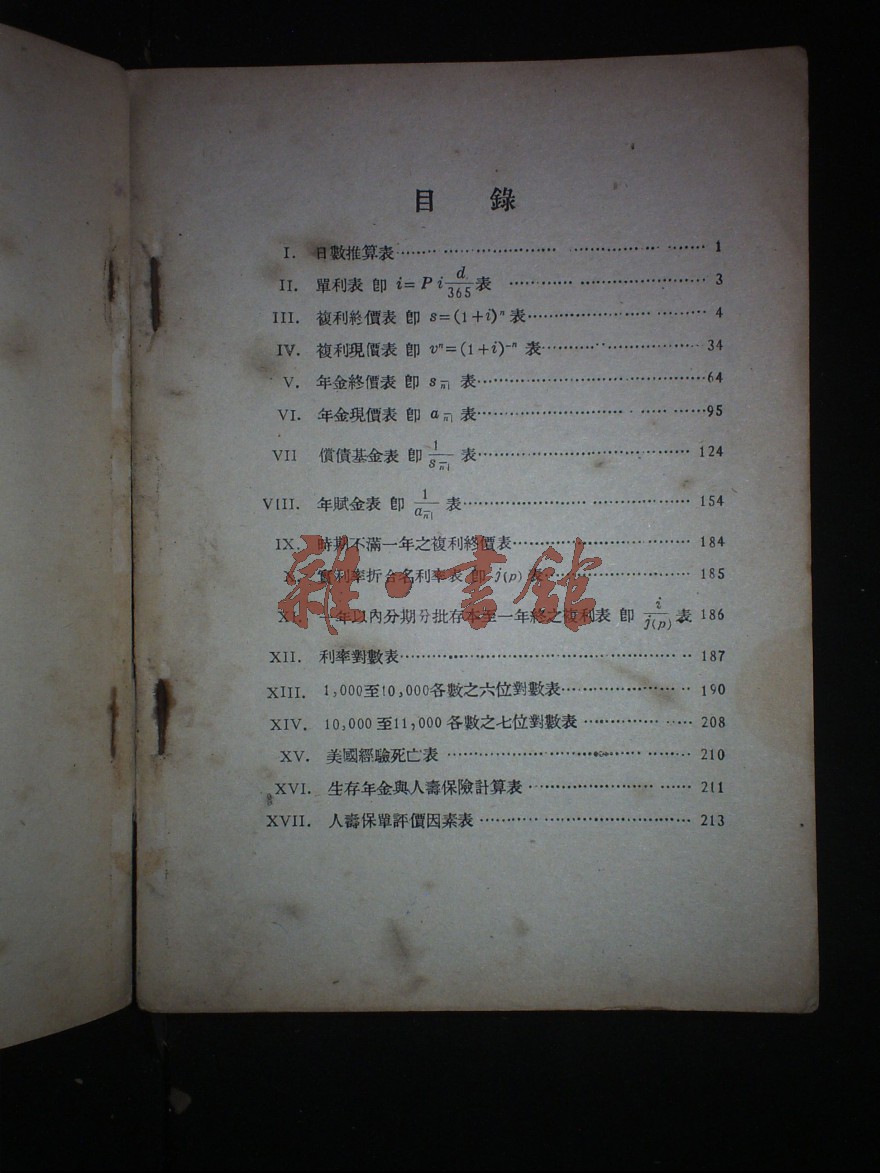 目 錄
I. 日數推算表 1
II. 單利表 卽 i=P i d/365 表 3
III. 複利終價表 卽 s=(1+i)ⁿ 表 4
IV. 複利現價表 卽 vⁿ=(1+i)⁻ⁿ 表 34
V. 年金終價表 卽 s n̅| 表 64
VI. 年金現價表 卽 a n̅| 表 95
VII 償債基金表 卽 1/s n̅| 表 124
VIII. 年賦金表 卽 1/a n̅| 表 154
IX. 時期不滿一年之複利終價表 184
X. 實利率折合名利率表 卽 j(p) 表 185
XI. 一年以內分期分批存本至一年終之複利表 卽 i/j(p) 表 186
XII. 利率對數表 187
XIII. 1,000至10,000各數之六位對數表 190
XIV. 10,000至11,000各數之七位對數表 208
XV. 美國經驗死亡表 210
XVI. 生存年金與人壽保險計算表 211
XVII. 人壽保單評價因素表 213
雜·書館